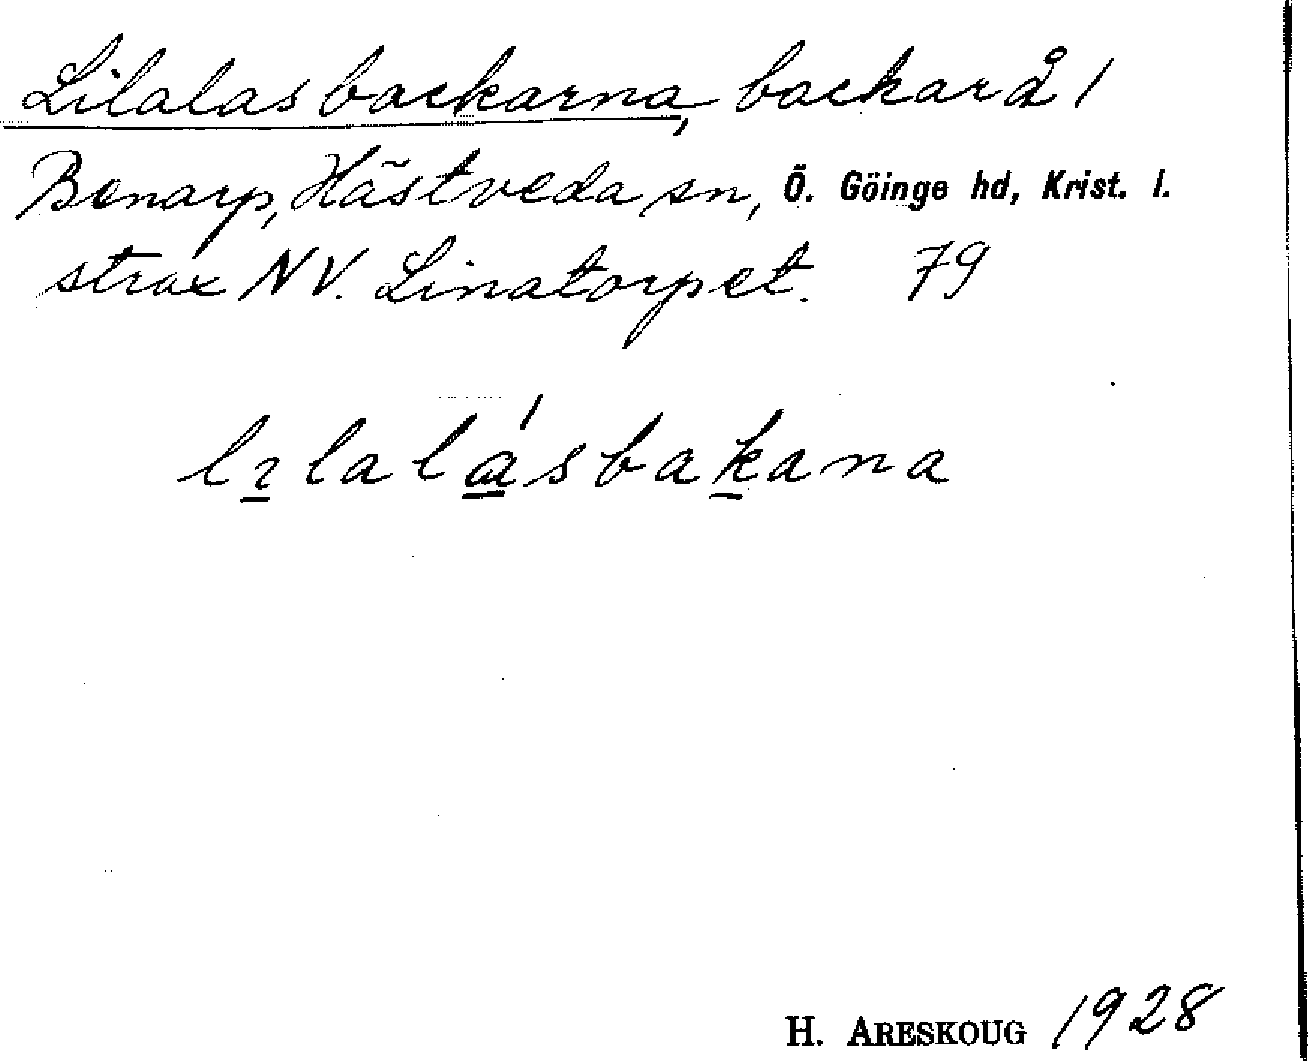 Lilalas backarna, backar å 1
Benarp, Hästveda sn, Ö. Göinge hd, Krist. l.
strax NV. Linatorpet. 79
lılalásbakana
H. ARESKOUG 1928